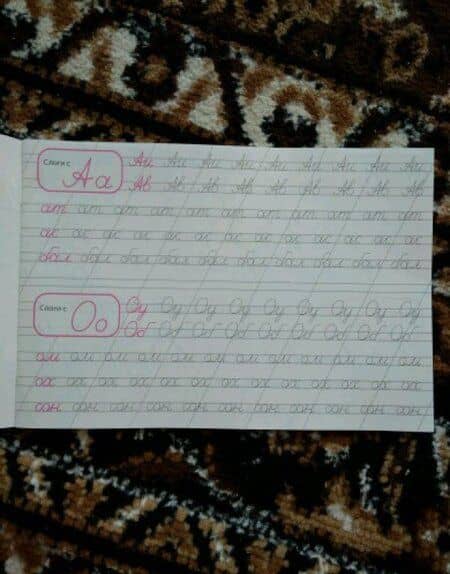 Слоги с Аа
Ан Ан Ан Ан Ан Ан Ан Ан Ан
Ав Ав Ав Ав Ав Ав Ав Ав Ав
ат ат ат ат ат ат ат ат ат ат ат
ас ас ас ас ас ас ас ас ас ас ас ас
бал бал бал бал бал бал бал бал бал бал
Слоги с Оо
Оу Оу Оу Оу Оу Оу Оу Оу Оу
Об Об Об Об Об Об Об Об Об
ом ом ом ом ом ом ом ом ом ом ом ом
ох ох ох ох ох ох ох ох ох ох ох ох
сон сон сон сон сон сон сон сон сон сон сон